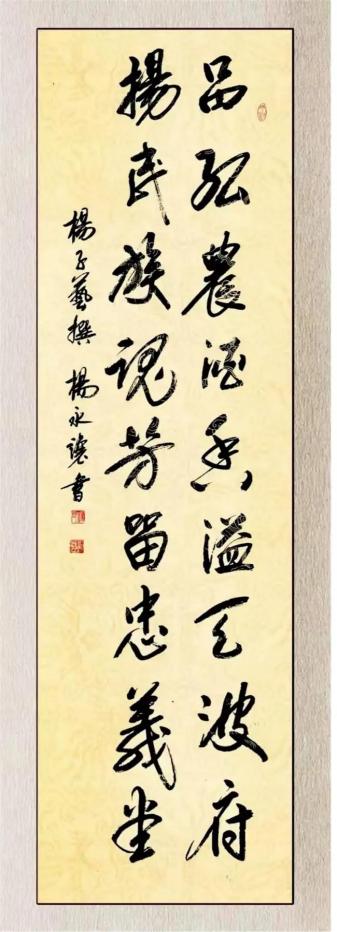 品弘農酒香溢天波府
揚民族魂芳留忠義堂
楊子藝撰 楊永讓書